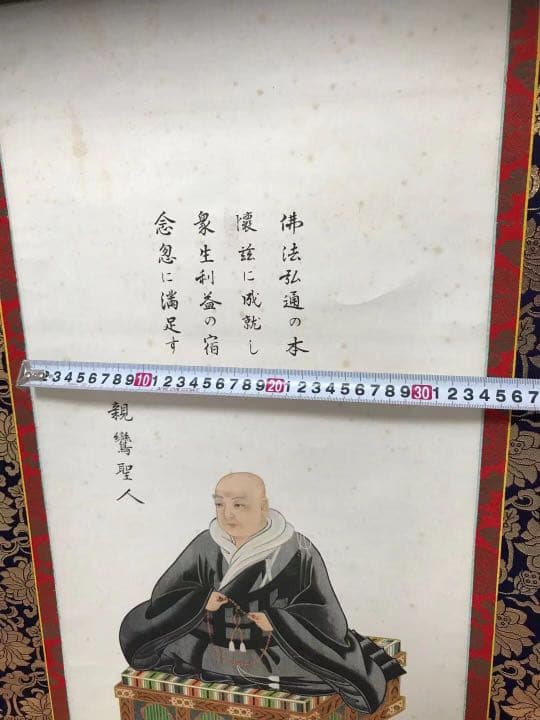 佛法弘通の本
懐玆に成就し
衆生利益の宿
念忽に満足す
親鸞聖人
2 3 4 5 6 7 8 9 10 1 2 3 4 5 6 7 8 9 20 1 2 3 4 5 6 7 8 9 30 1 2 3 4 5 6 7